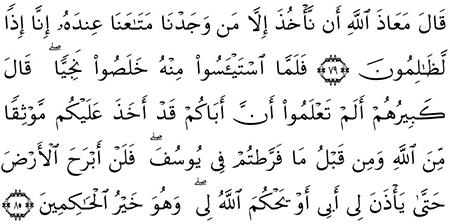 قَالَ مَعَاذَ ٱللَّهِ أَن نَّأۡخُذَ إِلَّا مَن وَجَدۡنَا مَتَٰعَنَا عِندَهُۥٓ إِنَّآ إِذٗا
لَّظَٰلِمُونَ ۝٧٩ فَلَمَّا ٱسۡتَيۡـَٔسُواْ مِنۡهُ خَلَصُواْ نَجِيّٗاۖ قَالَ
كَبِيرُهُمۡ أَلَمۡ تَعۡلَمُوٓاْ أَنَّ أَبَاكُمۡ قَدۡ أَخَذَ عَلَيۡكُم مَّوۡثِقٗا
مِّنَ ٱللَّهِ وَمِن قَبۡلُ مَا فَرَّطتُمۡ فِي يُوسُفَۖ فَلَنۡ أَبۡرَحَ ٱلۡأَرۡضَ
حَتَّىٰ يَأۡذَنَ لِيٓ أَبِيٓ أَوۡ يَحۡكُمَ ٱللَّهُ لِيۖ وَهُوَ خَيۡرُ ٱلۡحَٰكِمِينَ ۝٨٥